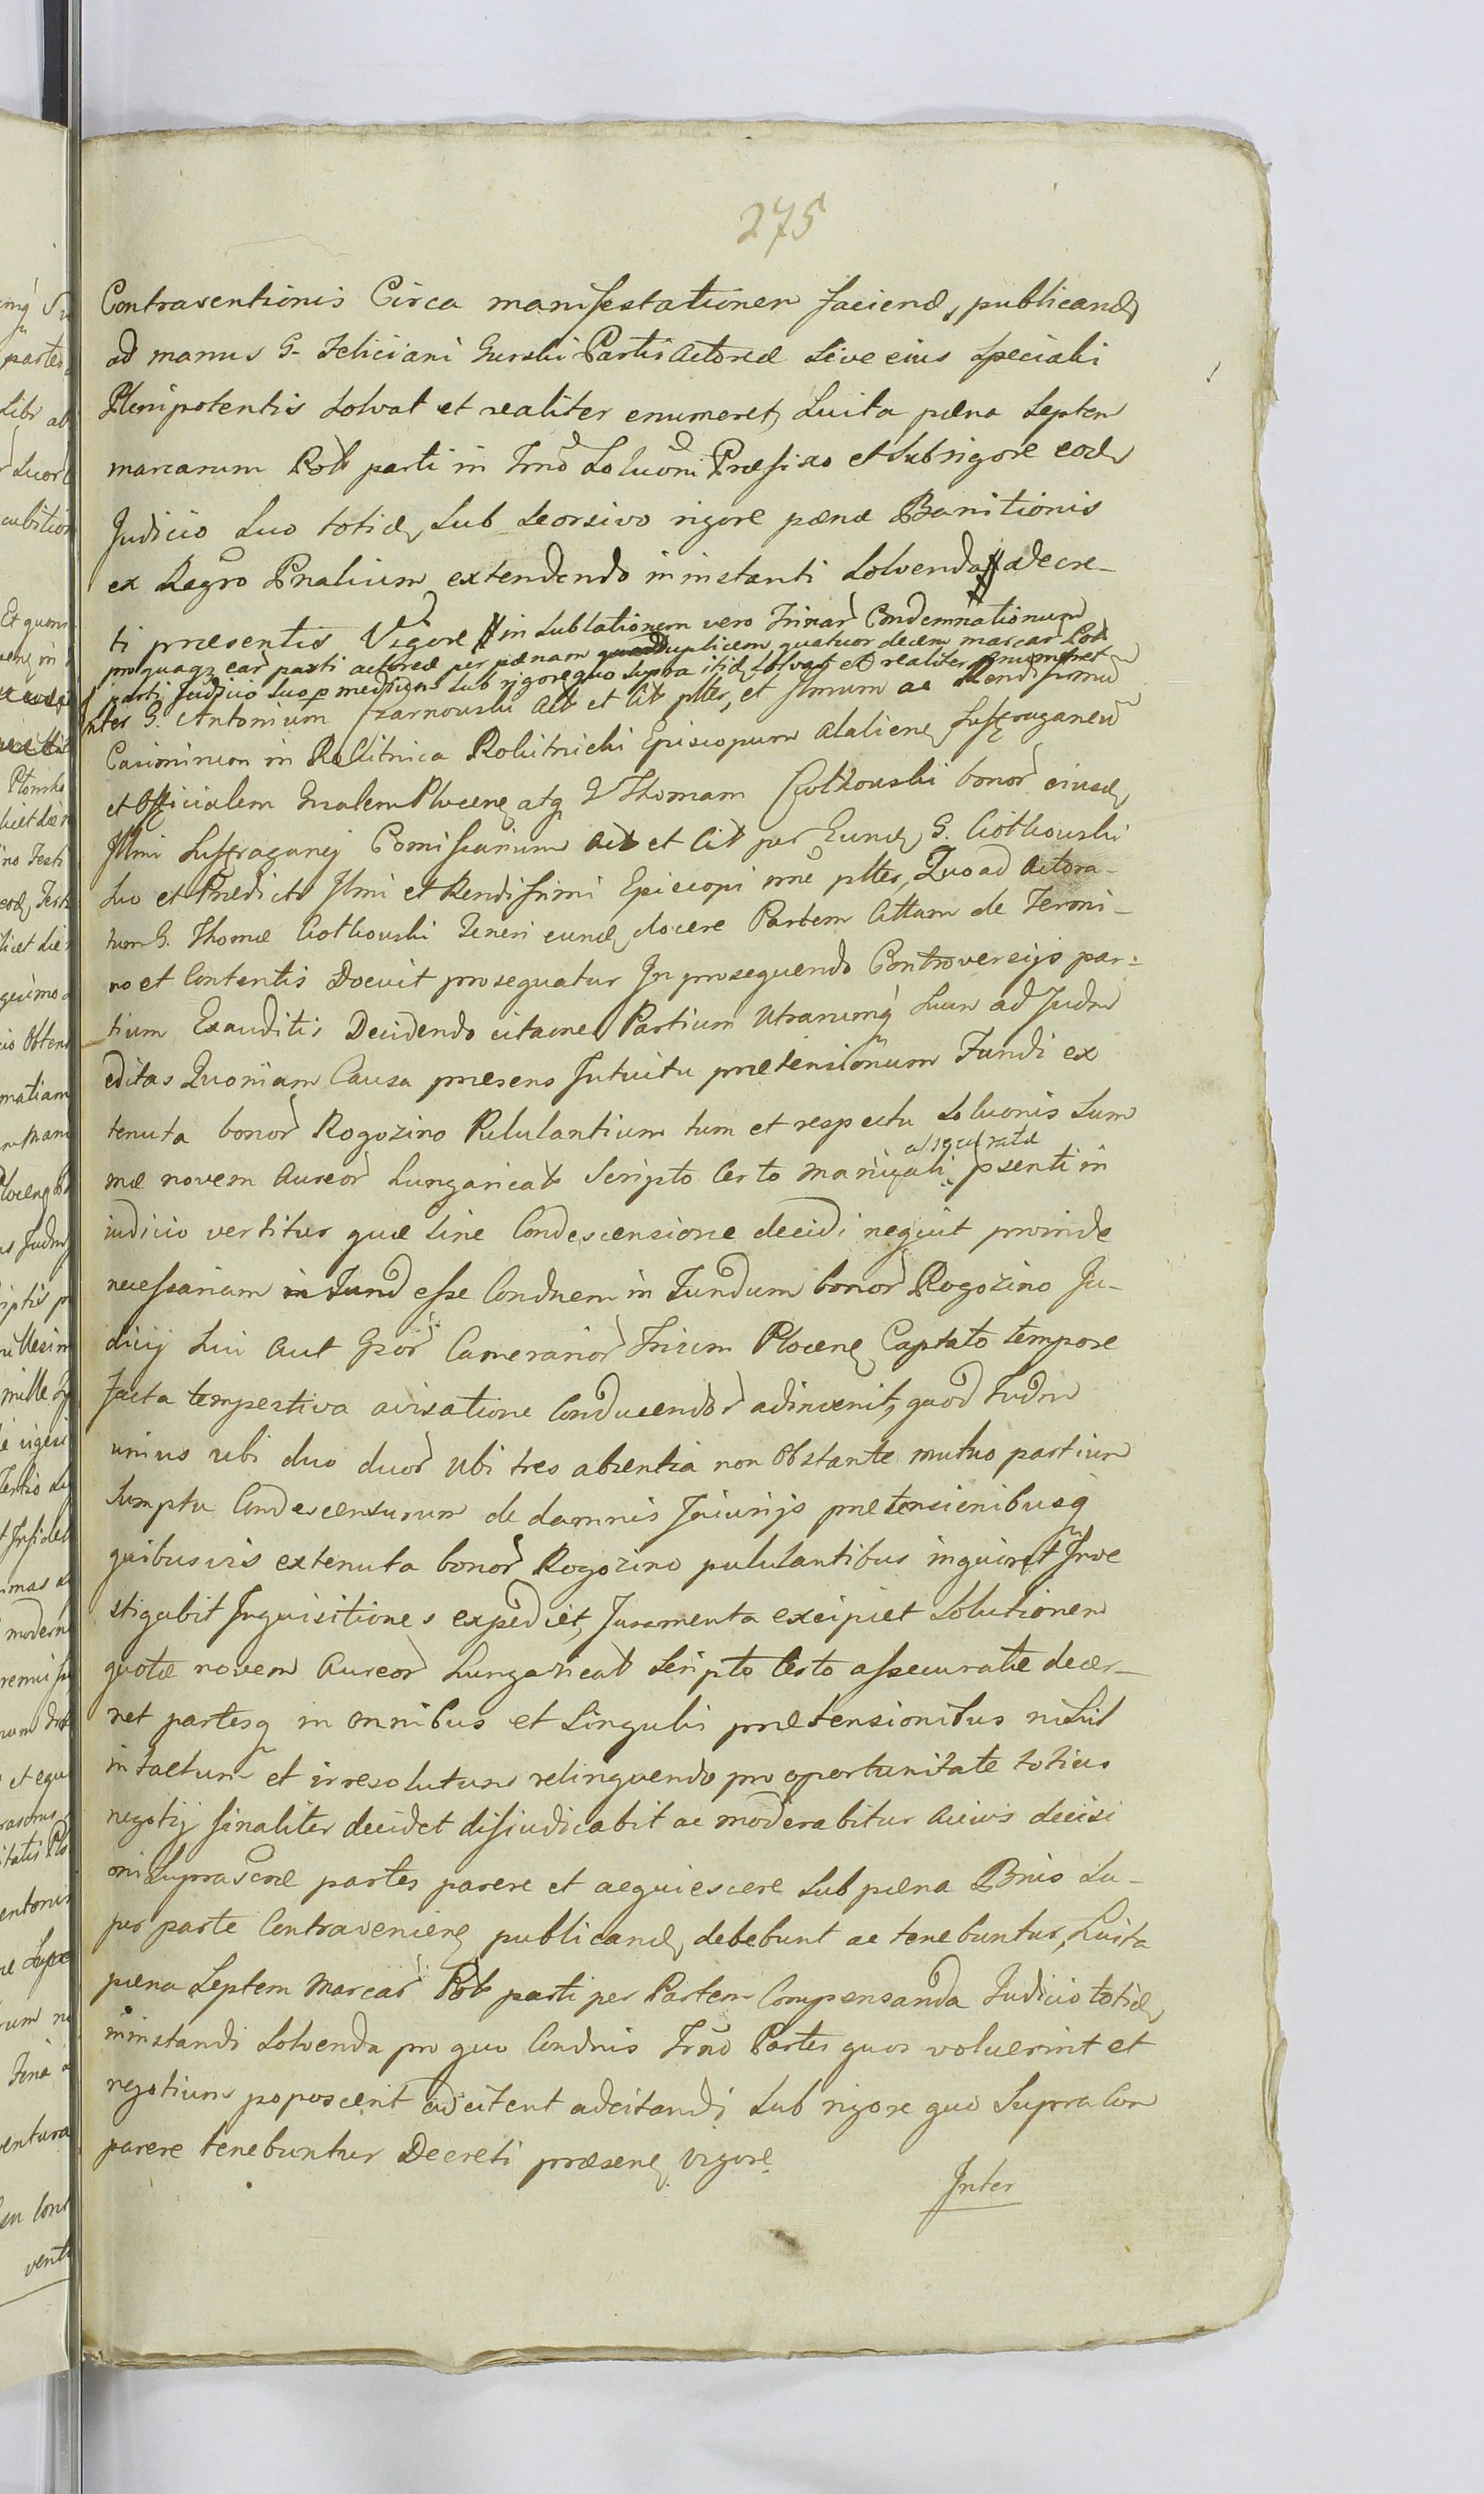 275
Contraventionis Circa manifestationem faciend, publicand
ad manus G. Feliciani Gurski Partis Actoreæ sive eius speciali
Plenipotentis solvat et realiter enumeret, Luita pœna septem
marcarum Pol parti in Trno Soluōni Præfixo et sub rigore eod
Judicio suo totid, sub seorsivo rigore pœnæ Banitionis
ex Regno Pnalium extendendo in instanti solvenda decre-
ti præsentis Vigore in sublationem vero Trinar Condemnationum
pro quaqz ear parti actoreæ per pœnam duplicem quatuor decem marcar Pol
parti Judicio suo p medium sub rigore quo supra itid solvat et realiter enumeret
Inter G. Antonium Czarnowski Act et Cit pltes, et Illmum ac Rendissimū
Casimirum in Rokitnica Rokitnicki Episcopum Alalien Suffraganeū
et Officialem Gnalem Plocen atq G Thomam Czotkowski bonor eiusd
Illmi Suffraganej Comissarium Act et Cit per Eund G. Ciotkowski
suo et Prædicti Illmi et Rendissimi Episcopi nne pltes, Quoad Actora-
tum G. Thomæ Ciotkowski Teneri eund docere Partem Cittam de Termi-
no et Contentis Docuit prosequatur In prosequendo Controversijs par-
tium Exauditis Decidendo citaōnes Partium Utrarumq suun ad Judm
editas Quoniam Causa præsens Intuitu prætensionum Fundi ex
tenuta bonor Rogozino Pululantium tum et respectu Soluonis Sum
assecuratæ
mæ novem Aureor Hungarical Scripto Certo Manuali psenti in
iudicio vertitur quæ sine Condescensione decidi nequit proinde
necessariam in Fund esse Condnem in Fundum bonor Rogozino Ju-
dicij sui Aut Gsor Camerarior Trium Plocen Captato tempore
facta tempestiva avisatione Conducendor adinvenit, quod Judm
unius ubi duo duor ubi tres absentia non obstante mutuo partium
Sumptu Condescensurum de damnis Iniurijs prætensionibusq
quibusvis ex tenuta bonor Rogozino pululantibus inquiret Inve
stigabit Inquisitiones expediet, Juramenta excipiet Solutionem
quotæ novem Aureor Hungarical Scripto Certo assecuratæ decer-
net partesq in omnibus et singulis prætensionibus nihil
intactum et irresolutum relinquendo pro oportunitate totius
negotij finaliter decidet disiudicabit ac moderabitur Cuius decisi
oni suprascræ partes parere et acquiescere sub pœna Bnis Su-
per parte Contravenien publicand, debebunt ac tenebuntur, Luita
pœna septem Marcar Pol parti per Partem Compensanda Judicio totid,
in instandi solvenda pro quo Condnis Trno Partes quos voluerint et
negotium poposcerit adcitent adcitandi sub rigore quo supra Com
parere tenebuntur Decreti præsen vigore
Inter